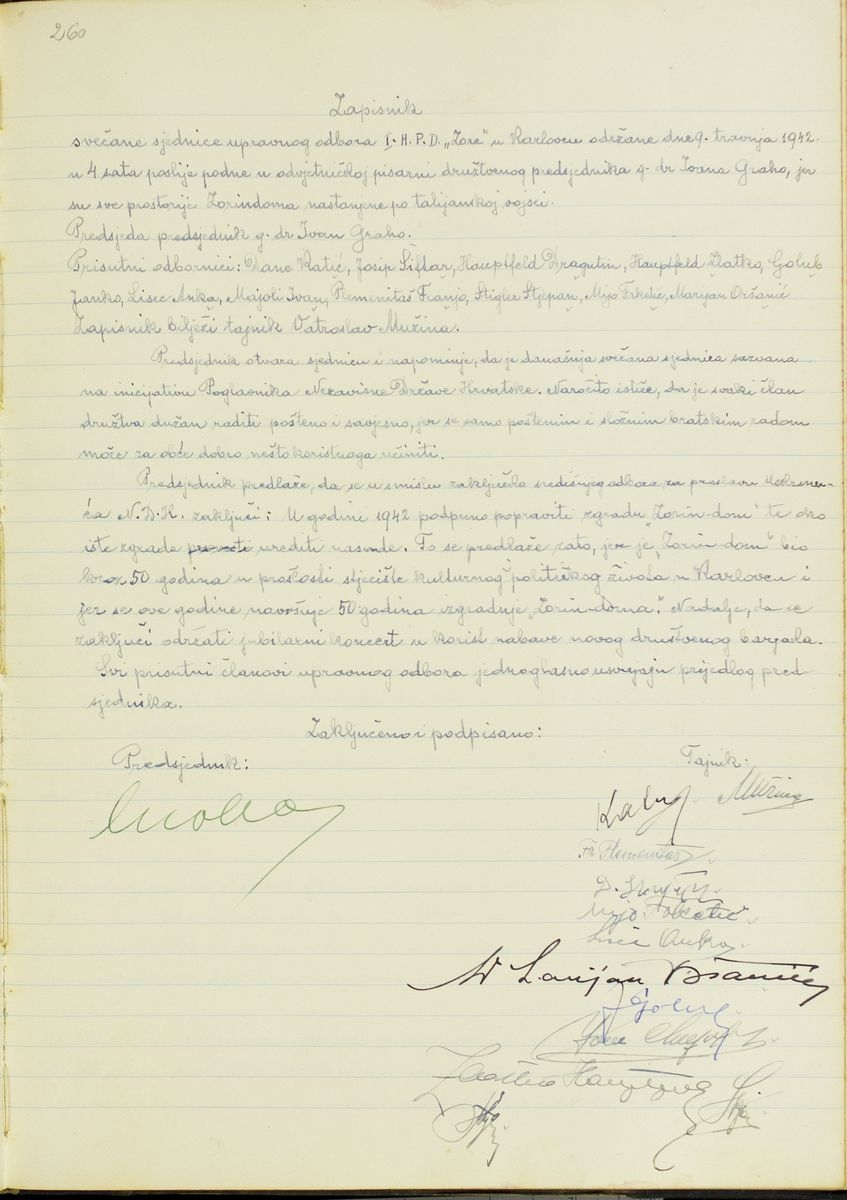 260
Zapisnik
svečane sjednice upravnog odbora I. H. P. D. „Zore“ u Karlovcu održane dne 9. travnja 1942.
u 4 sata poslije podne u odvjetničkoj pisarni društvenog predsjednika g. dr Ivana Graho, jer
su sve prostorije Zorindoma nastanjene po talijanskoj vojsci.
Predsjeda predsjednik g. dr Ivan Graho.
Prisutni odbornici: Dane Katić, Josip Šiftar, Hauptfeld Dragutin, Hauptfeld Zlatko, Golub
Janko, Lisec Anka, Majoli Ivan, Plemenitaš Franjo, Štigler Stjepan, Mijo Frketić, Marijan Oršanić
Zapisnik bilježi tajnik Vatroslav Mužina.
Predsjednik otvara sjednicu i napominje, da je današnja svečana sjednica sazvana
na inicijativu Poglavnika Nezavisne Države Hrvatske. Naročito ističe, da je svaki član
društva dužan raditi pošteno i savjesno, jer se samo poštenim i složnim bratskim radom
može za obće dobro nešto koristnoga učiniti.
Predsjednik predlaže, da se u smislu zaključka središnjeg odbora za proslavu
N. D. H. zaključi: U godini 1942 podpuno popraviti zgradu „Zorin-dom“ te oko
iste zgrade urediti nasade. To se predlaže zato, jer je „Zorin-dom“ bio
kroz 50 godina u prošlosti stjecište kulturnog i političkog života u Karlovcu i
jer se ove godine navršuje 50 godina izgradnje „Zorin-doma“. Nadalje, da se
zaključi održati jubilarni koncert u korist nabave novog društvenog barjaka.
Svi prisutni članovi upravnog odbora jednoglasno usvajaju prijedlog pred
sjednika.
Zaključeno i podpisano:
Predsjednik: Tajnik:
Mužina
Fr. Plemenitaš
Mijo Frketić
Anka
Marijan Oršanić
Golub
Zlatko Hauptfeld